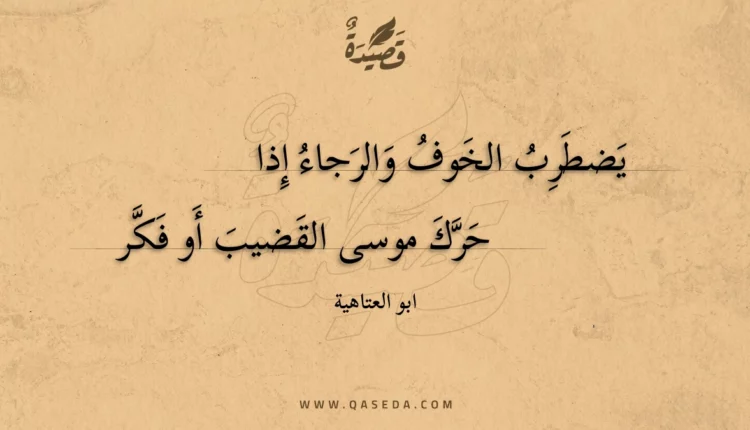 قَصِيْدَةٌ
يَضطَرِبُ الخَوفُ وَالرَجاءُ إِذا
حَرَّكَ موسى القَضيبَ أَو فَكَّر
ابو العتاهية
WWW.QASEDA.COM